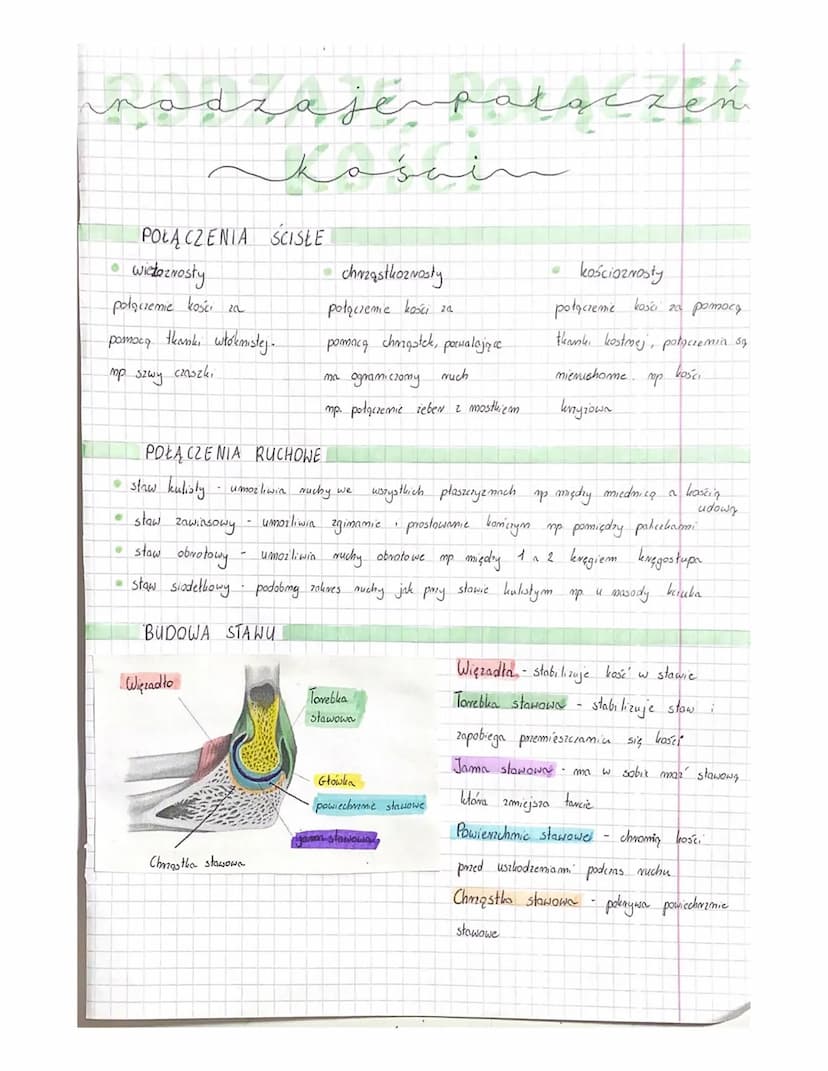 rodzaje połączeń
kości
POŁĄCZENIA ŚCISŁE
więzozrosty
połączenie kości za
pomocą tkanki włóknistej.
np szwy czaszki
chrząstkozrosty
połączenie kości za
pomocą chrząstek, pozwalające
na ograniczony ruch
np. połączenie żeber z mostkiem
kościozrosty
połączenie kości za pomocą
tkanki kostnej, połączenia są
nieruchome. np kości
krzyżowa
POŁĄCZENIA RUCHOWE
staw kulisty - umożliwia ruchy we wszystkich płaszczyznach np między miednicą a kością
udową
staw zawiasowy - umożliwia zginanie i prostowanie kończyn np pomiędzy paliczkami
staw obrotowy - umożliwia ruchy obrotowe np. między 1 a 2 kręgiem kręgosłupa
staw siodełkowy - podobny zakres ruchu jak przy stawie kulistym np. u nasady kciuka
BUDOWA STAWU
Więzadło
Torebka
stawowa
Główka
powiechrznie stawowe
jama stawowa
Chrząstka stawowa
Więzadła - stabilizuje kość w stawie
Torebka stawowa - stabilizuje staw i
zapobiega przemieszczaniu się kości
Jama stawowa - ma w sobie maź stawową
która zmiejsza tarcie
Powierzchnie stawowe - chronią kości
przed uszkodzeniami podczas ruchu
Chrząstka stawowa - pokrywa powiechrznie
stawowe